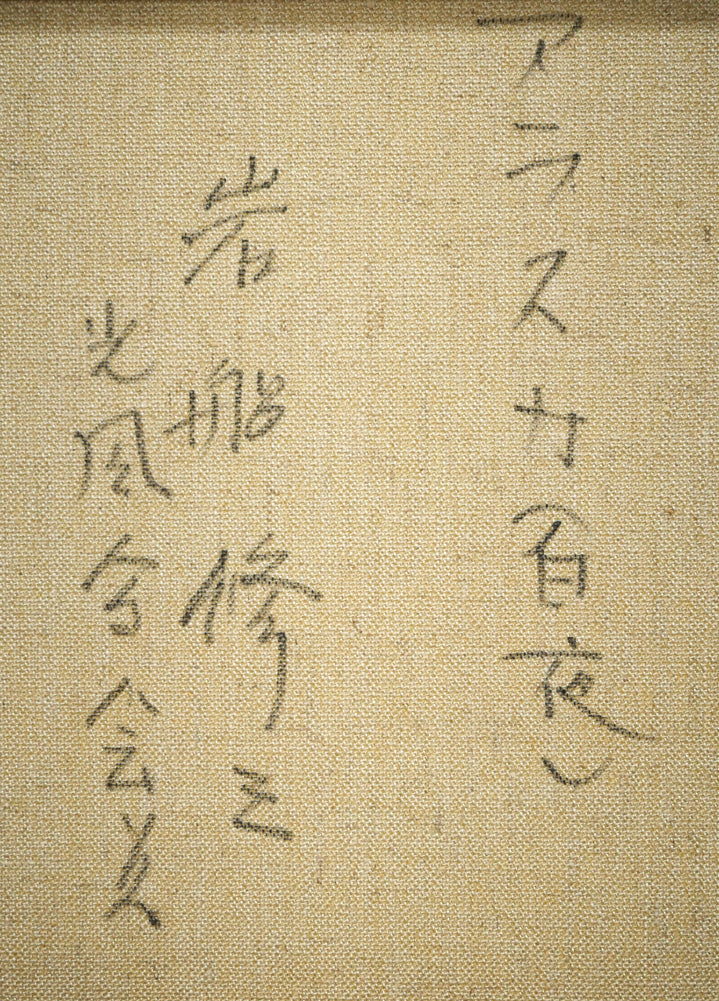 アラスカ(白夜)
岩船修三
光風会会員